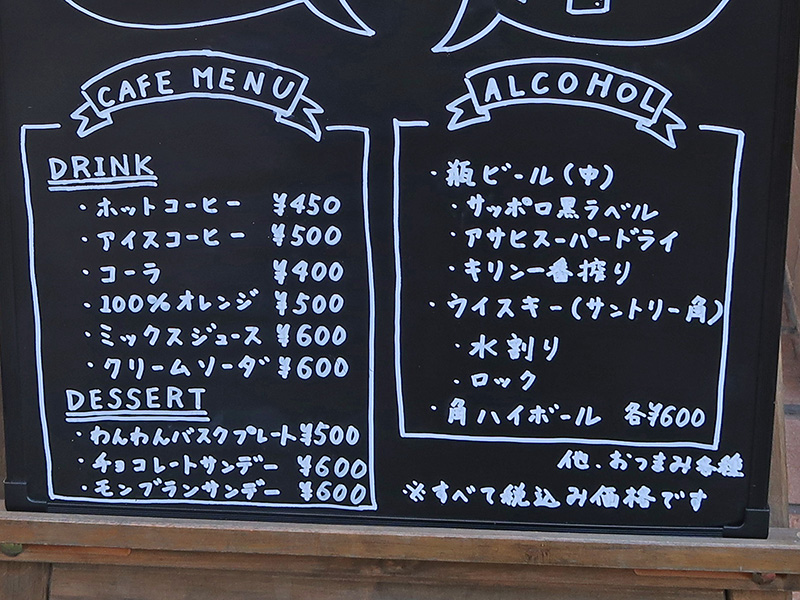 CAFE MENU
DRINK
・ホットコーヒー ¥450
・アイスコーヒー ¥500
・コーラ ¥400
・100%オレンジ ¥500
・ミックスジュース ¥600
・クリームソーダ ¥600
DESSERT
・わんわんバスクプレート ¥500
・チョコレートサンデー ¥600
・モンブランサンデー ¥600
ALCOHOL
・瓶ビール(中)
・サッポロ黒ラベル
・アサヒスーパードライ
・キリン一番搾り
・ウイスキー(サントリー角)
・水割り
・ロック
・角ハイボール 各¥600
他、おつまみ各種
※すべて税込み価格です